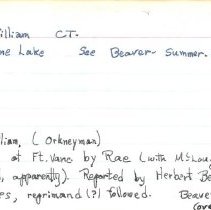 illiam C.T.
ne Lake See Beaver- Summer.
lliam, (Orkneyman)
at Ft. Vanc by Rae (with McLou
, apparently). Reported by Herbert Be
es, regrimand (?) followed. Beaver
(over